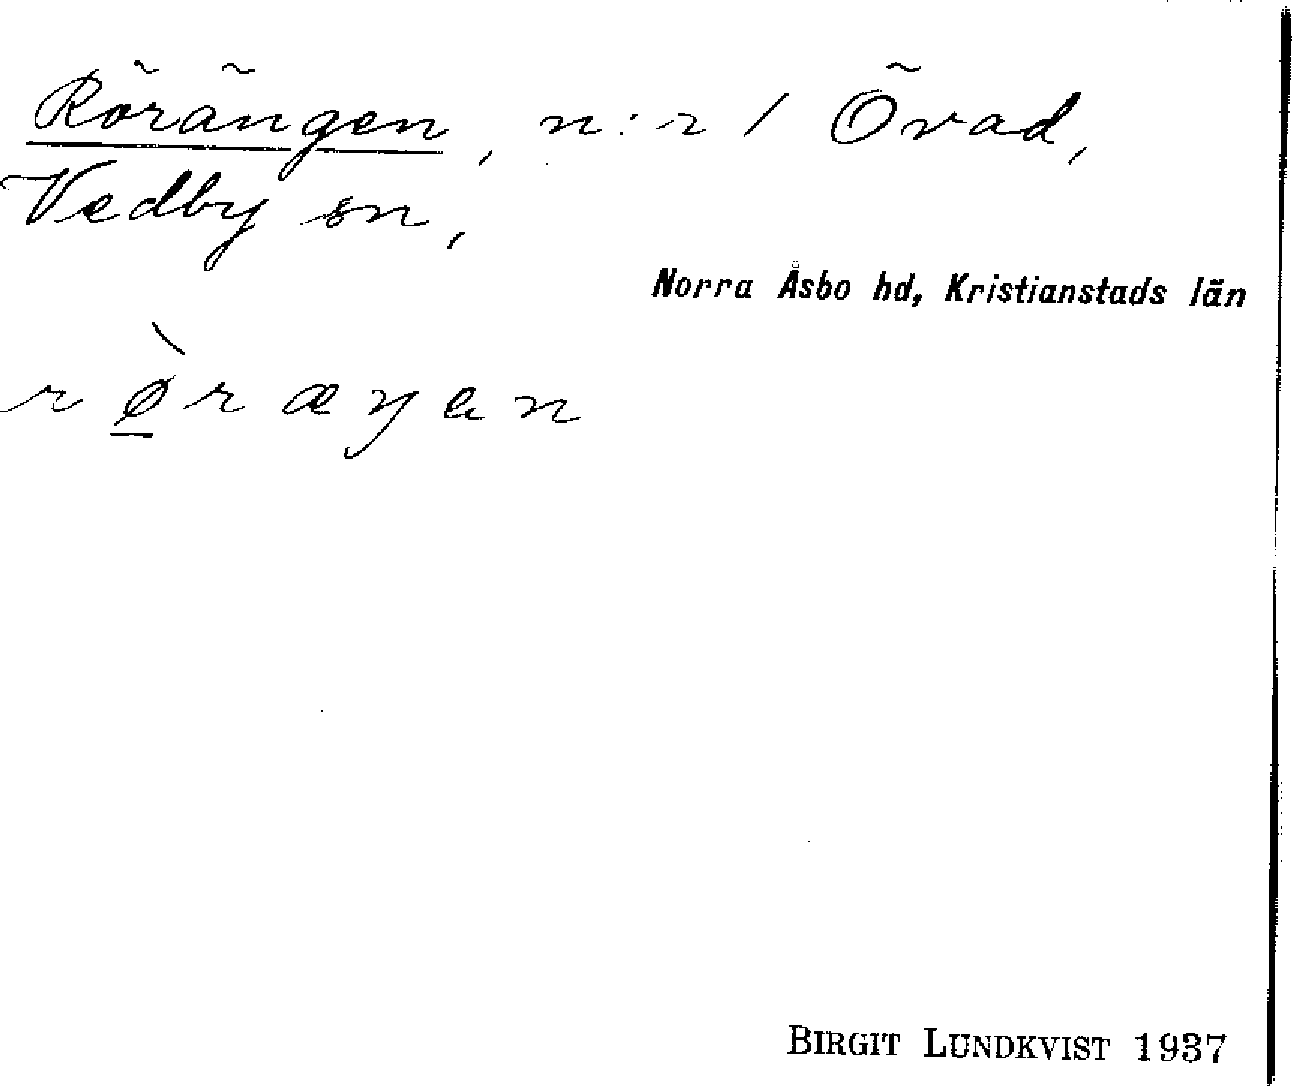 Rörängen, n:r 1 Övad,
Vedby sn,
Norra Åsbo hd, Kristianstads län
rø̀ræŋən
BIRGIT LUNDKVIST 1937